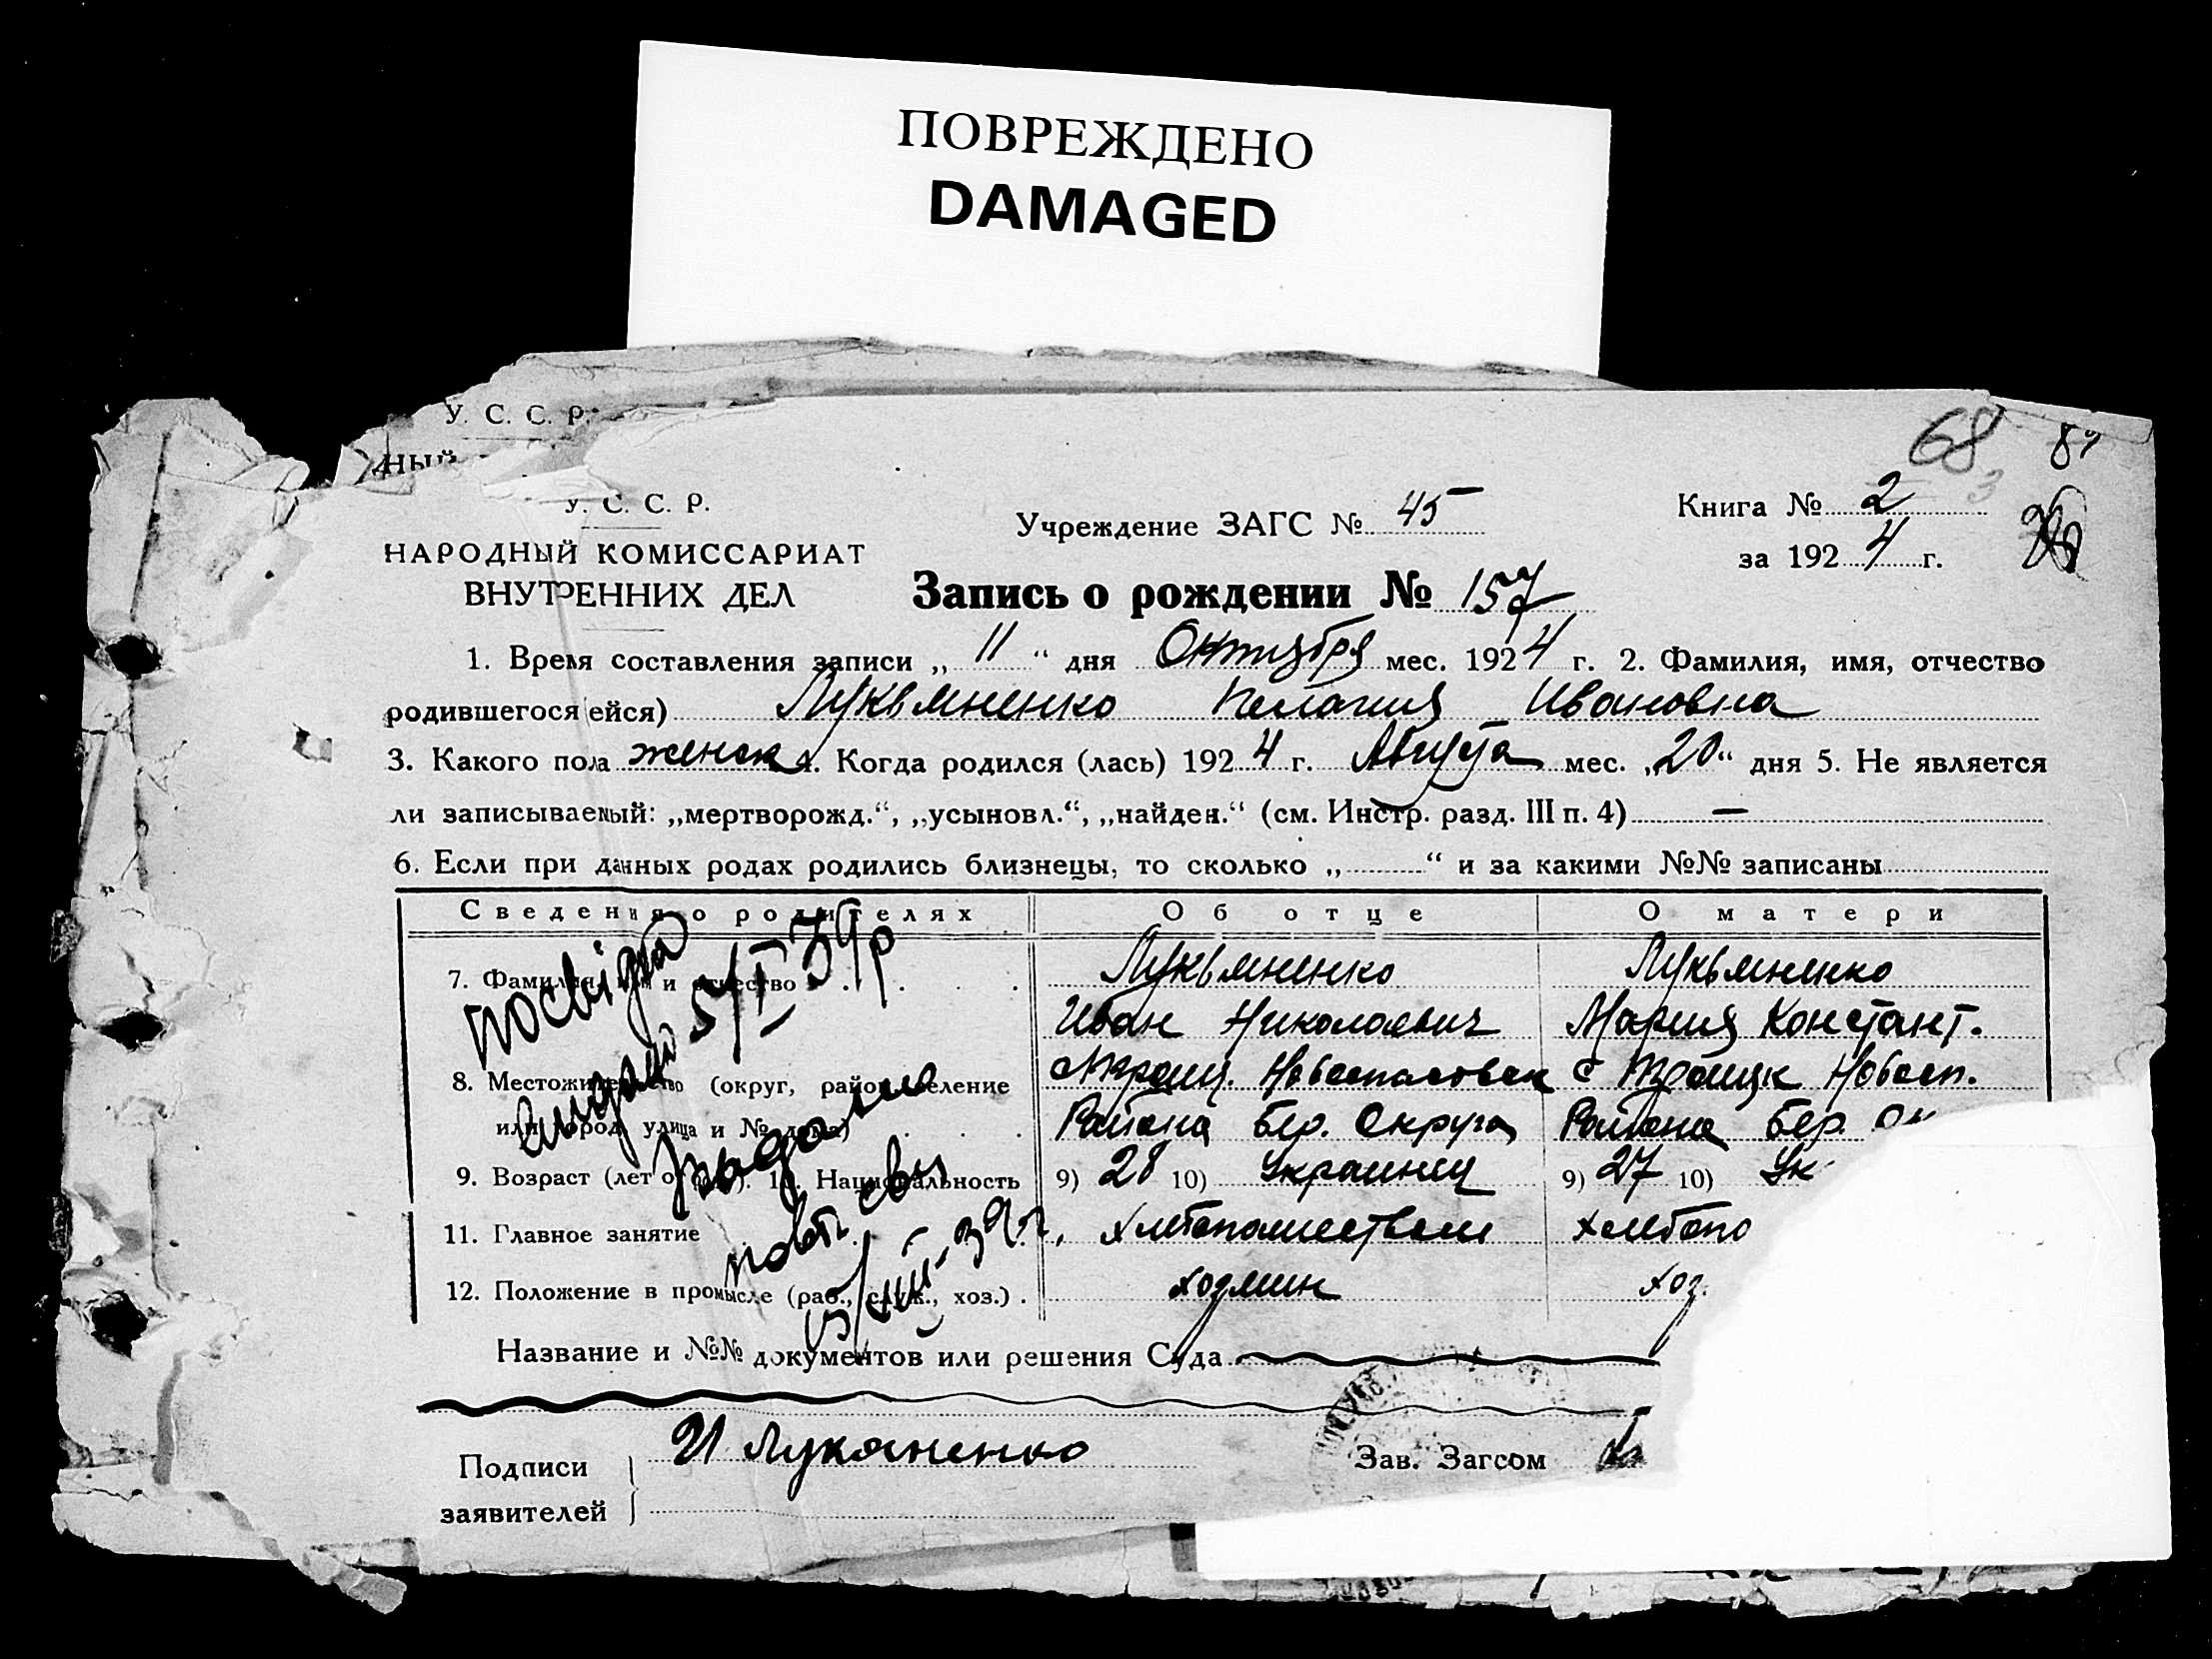 ПОВРЕЖДЕНО
DAMAGED
У. С. С. Р.
У. С. С. Р.
НАРОДНЫЙ КОМИССАРИАТ
ВНУТРЕННИХ ДЕЛ
Учреждение ЗАГС № 45
68 89
Книга № 2
за 1924 г.
Запись о рождении № 157
1. Время составления записи „ 11 “ дня Октября мес. 1924 г. 2. Фамилия, имя, отчество
родившегося ейся) Лукьяненко Пелагия Ивановна
3. Какого пола женск 4. Когда родился (лась) 1924 г. Августа мес. „20“ дня 5. Не является
ли записываемый: „мертворожд.“, „усыновл.“, „найден.“ (см. Инстр. разд. III п. 4) —
6. Если при данных родах родились близнецы, то сколько „ “ и за какими №№ записаны
Сведения о родителях Об отце О матери
7. Фамилия, имя и отчество Лукьяненко Лукьяненко
Иван Николаевич Мария Констант.
8. Местожительство (округ, район, селение с Троиц. Новоспасовск с Троицк Новосп.
или город, улица и № дома) Района Бер. Округа Района Бер. Ок
9. Возраст (лет 10. Национальность 9) 28 10) Украинец 9) 27 10) Ук
11. Главное занятие Хлебопашеством хлебопа
12. Положение в промысле (раб., служ., хоз.) хозяин хоз.
посвідка
видана 5/I 39р
повт.
5/III-39 г.
Название и №№ документов или решения Суда
Подписи
заявителей
И Луканенко
Зав. Загсом